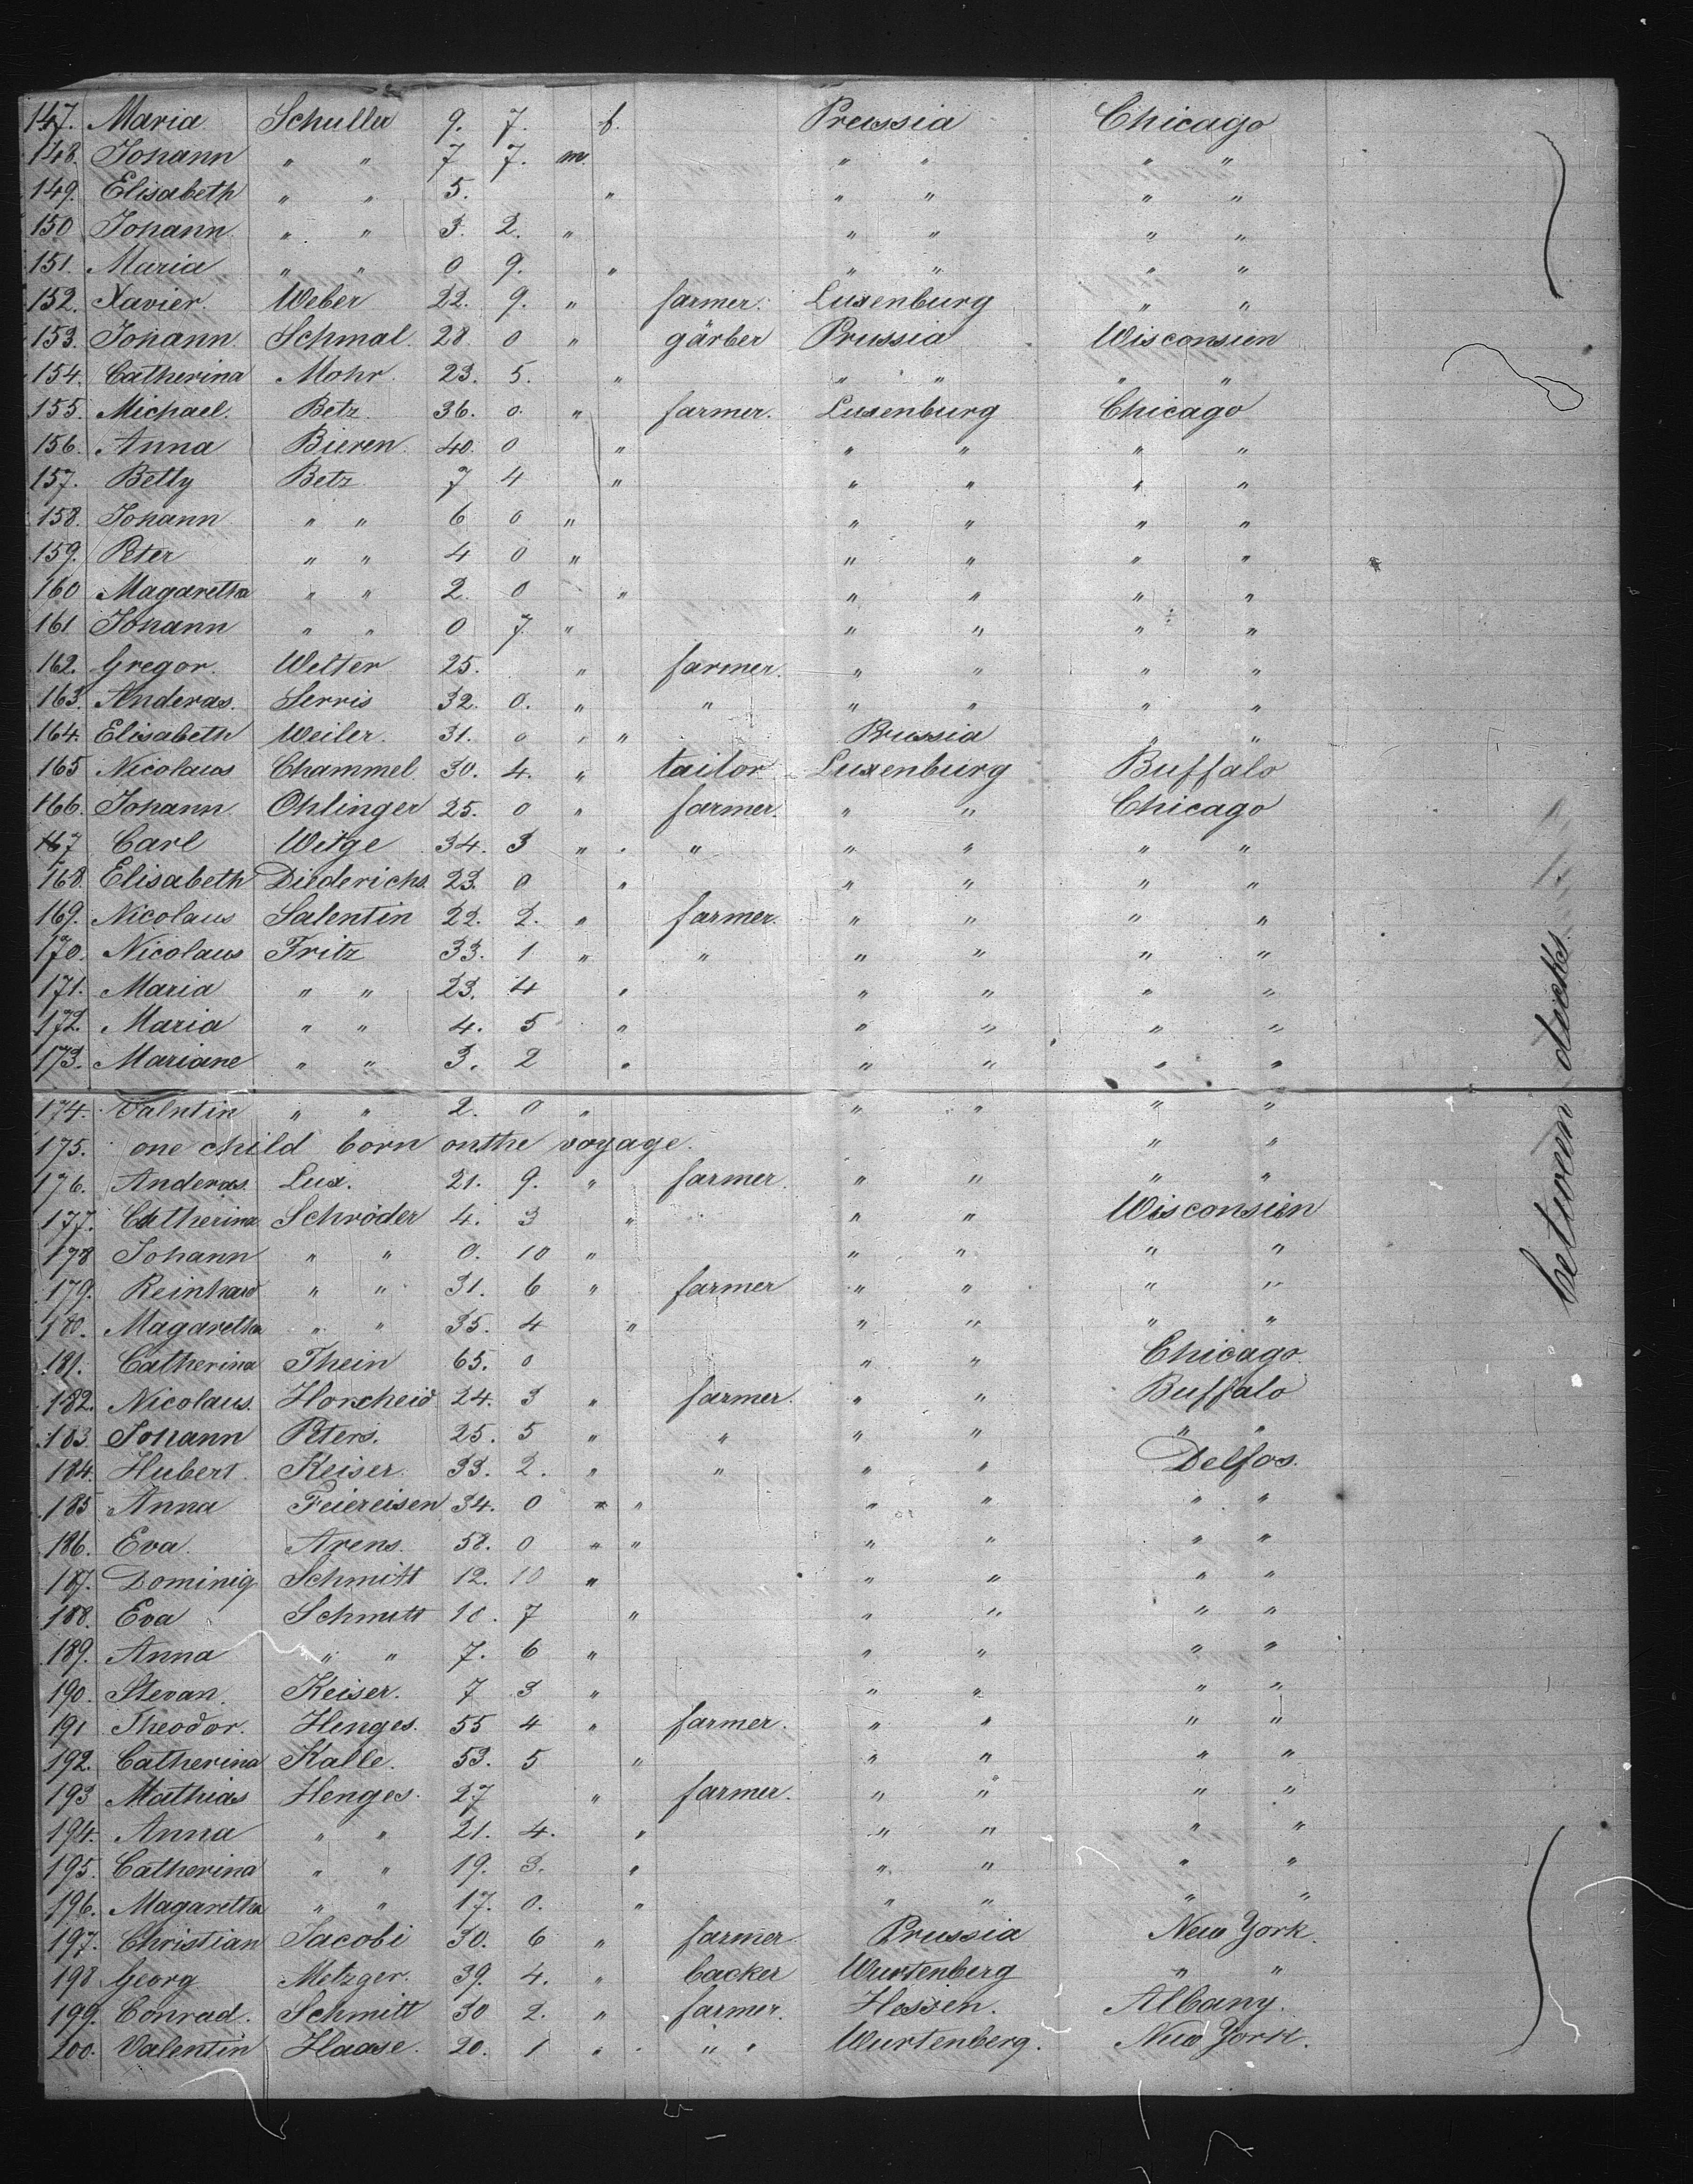 147. Maria Schuller 9. 7. f. Preussia Chicago
148. Johann " " 7 7. m. " " " "
149. Elisabeth " " 5. " " " " "
150 Johann " " 3. 2. " " " " "
151. Maria " " 0 9. " " " " "
152. Xavier Weber 22. 9. " farmer. Luxenburg " "
153. Johann Schmal. 28 0 " gärber Prussia Wisconsien
154. Catherina Mohr. 23. 5. " " " " "
155. Michael. Betz 36. 0. " farmer. Luxenburg Chicago
156. Anna Bieren. 40. 0 " " " " "
157. Betty Betz 7 4 " " " " "
158. Johann " " 6 0 " " " " "
159. Peter " " 4 0 " " " " "
160 Magaretha " " 2. 0 " " " " "
161 Johann " " 0 7. " " " " "
162. Gregor. Welter 25. " farmer. " " " "
163. Anderas. Serris 32. 0. " " " " " "
164. Elisabeth Weiler. 31. 0 " " Prussia " "
165 Nicolaus Chammel 30. 4. " tailor Luxenburg Buffalo
166. Johann. Ohlinger 25. 0 " farmer. " " Chicago
167 Carl Witge 34. 3 " " " " " "
168. Elisabeth Diederichs. 23. 0 " " " " "
169. Nicolaus Salentin 22. 2. " farmer. " " " "
170. Nicolaus Fritz 33. 1 " " " " " "
171. Maria " " 23. 4 " " " " "
172. Maria " " 4. 5 " " " " "
173. Mariane " " 3. 2 " " " " "
174. Valntin " " 2. 0 " " " " "
175. one child born onthe voyage. " "
176. Anderas. Lux. 21. 9. " farmer. " " " "
177. Catherina Schröder 4. 3 " " " Wisconsien
178 Johann " " 0. 10 " " " " "
179. Reinhard " " 31. 6 " farmer " " " "
180. Magaretha " " 35. 4 " " " " "
181. Catherina Thein 65. 0 " " Chicago.
182. Nicolaus. Horscheid 24. 3 " farmer. " " Buffalo
183. Johann Peters. 25. 5 " " " " " "
184. Hubert. Keiser. 33. 2. " " " " Delfos.
185 Anna Feiereisen 34. 0 " " " " " "
186. Eva. Arens. 58. 0 " " " " " "
187. Dominig Schmitt 12. 10 " " " " "
188. Eva Schmitt 10. 7 " " " " "
189. Anna " " 7. 6 " " " " "
190. Stevan. Keiser. 7 3 " " " " "
191 Theodor. Henges. 55 4 " farmer. " " " "
192. Catherina Kalle. 53. 5 " " " " "
193 Mathias Henges. 27 " farmer. " " " "
194. Anna " " 21. 4. " " " " "
195. Catherina " " 19. 3. " " " " "
196. Magaretha " " 17. 0. " " " " "
197. Christian Jacobi 30. 6 " farmer Prussia New York.
198 Georg Metzger. 39. 4. " backer Wurtenberg " "
199. Conrad. Schmitt 30 2. " farmer. Hessen. Albany.
200. Valentin Haase. 20. 1 " " " Wurtenberg. New York.
between decks